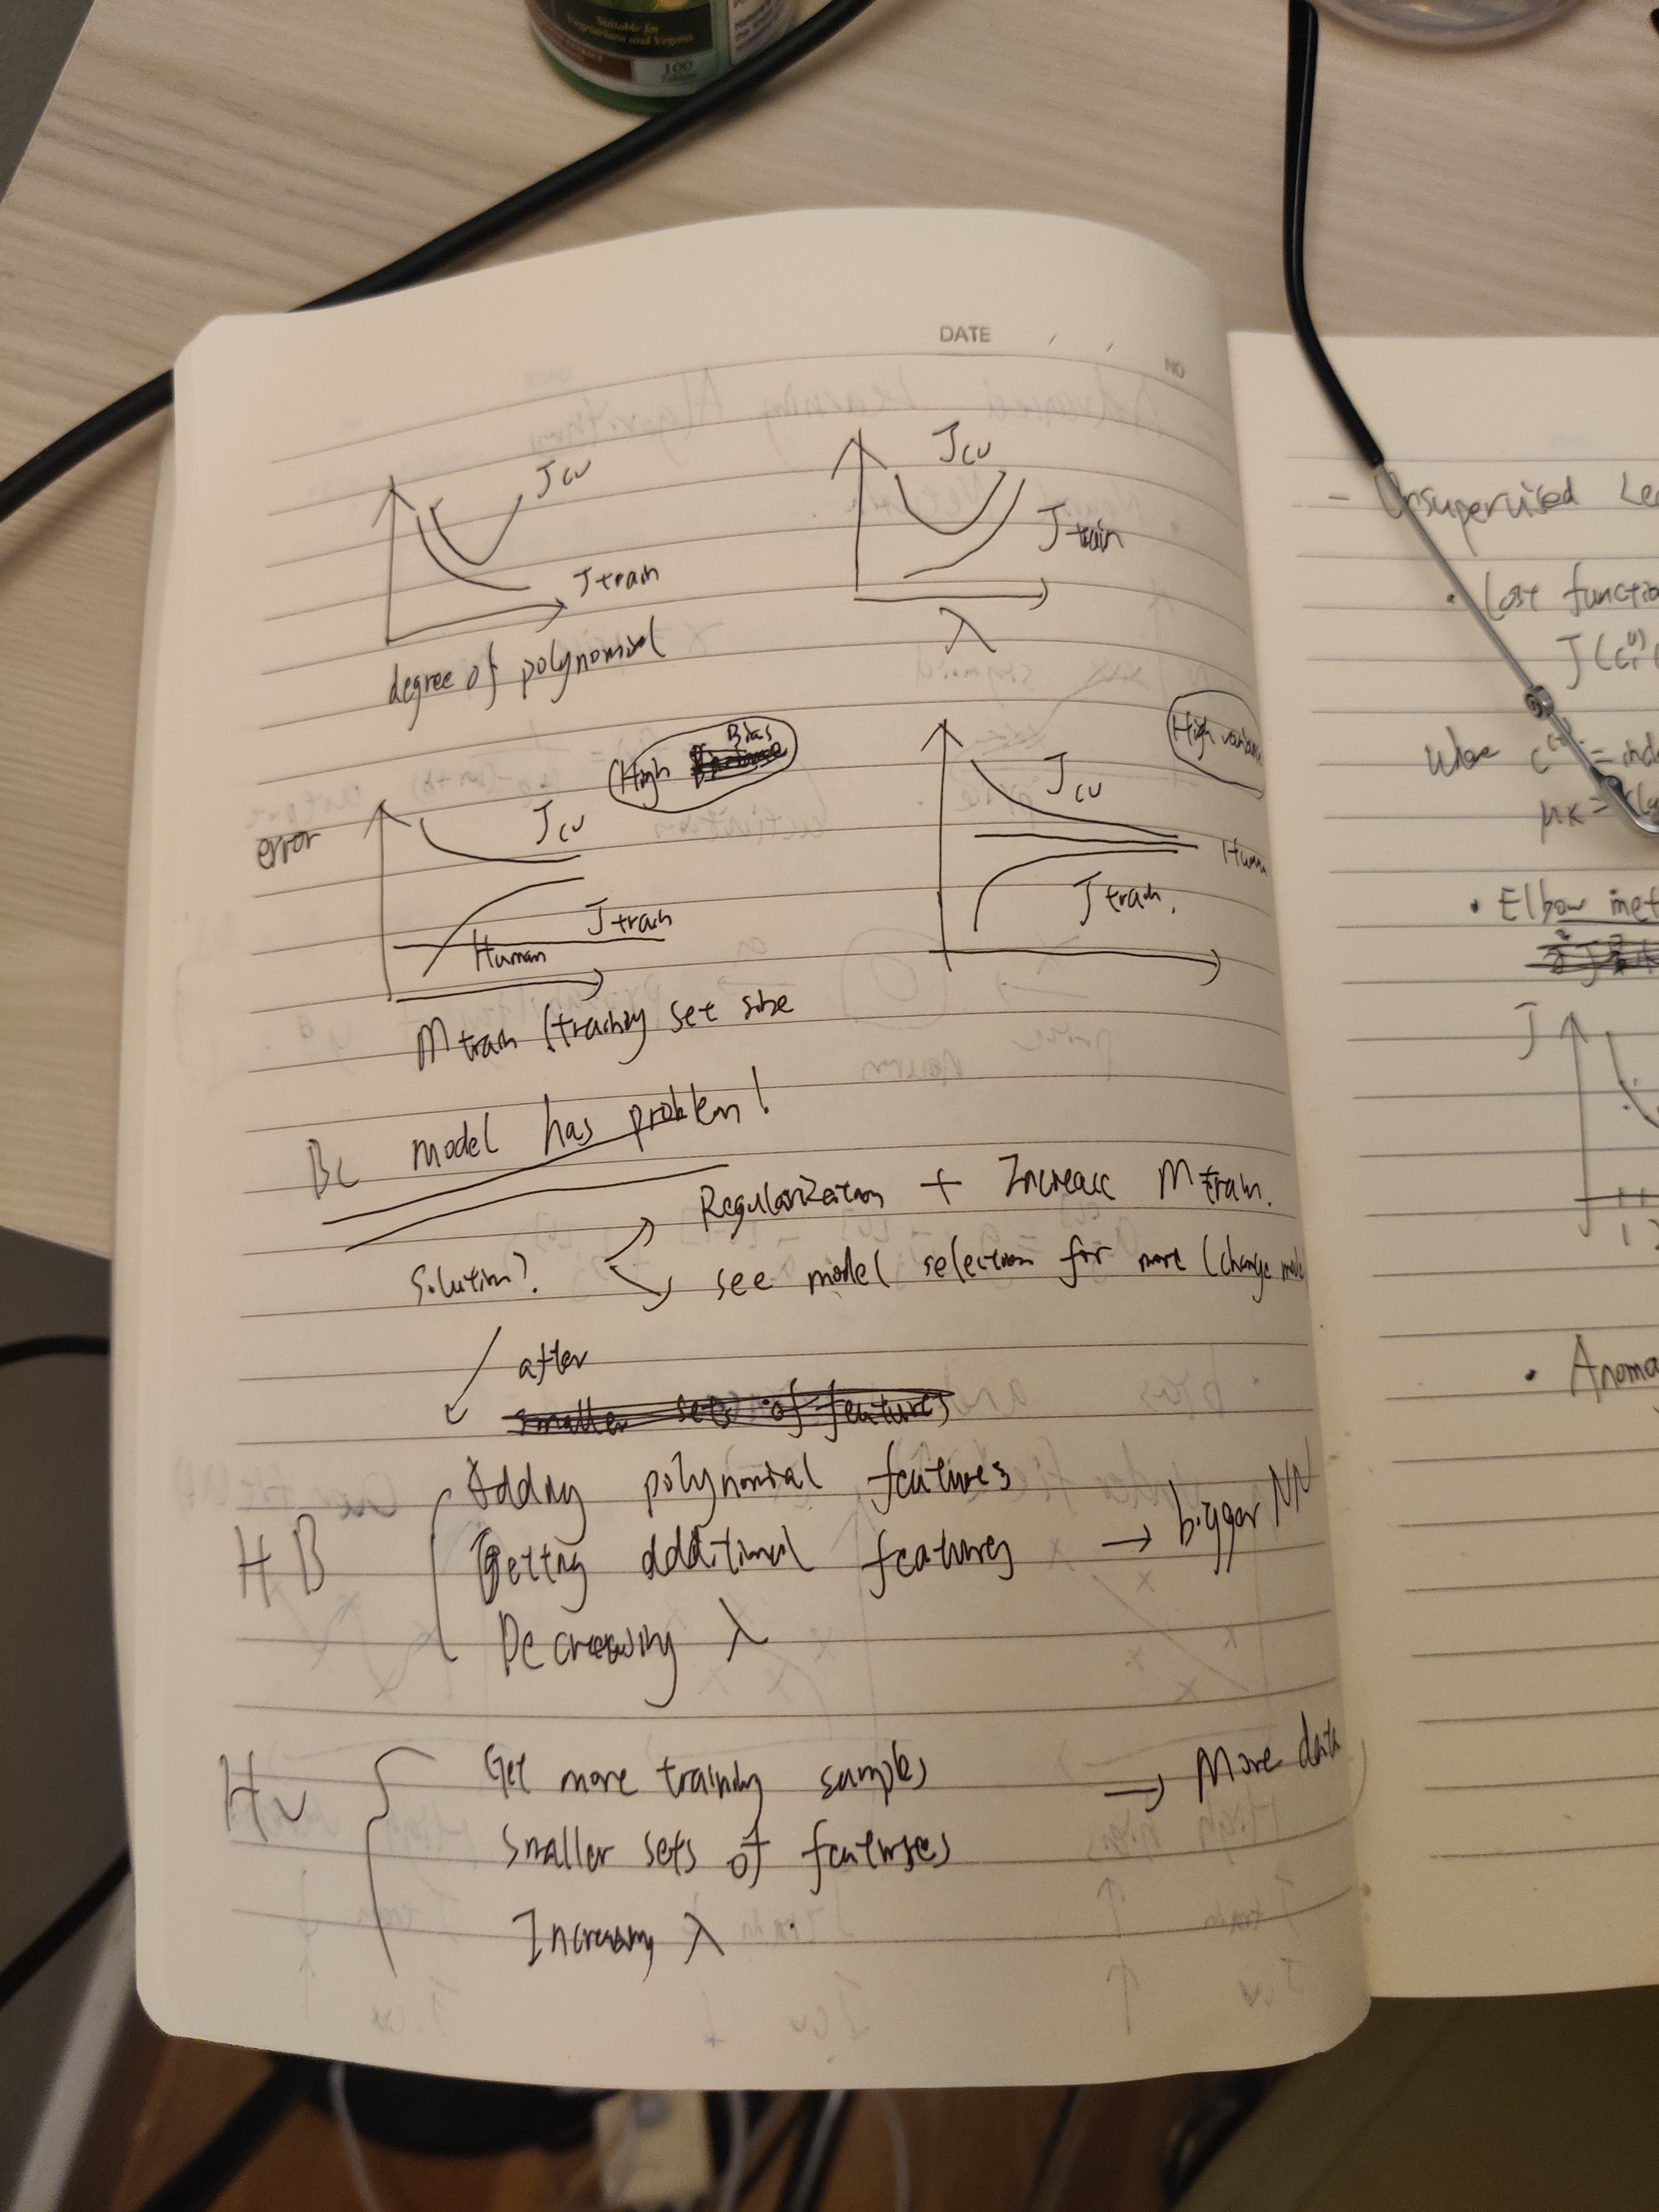 Suitable for
Vegetarian and Vegans
100
Tablets
DATE / /
NO
Jcv
Jtrain
degree of polynomial
Jcv
Jtrain
λ
High Bias
error
Jcv
Jtrain
Human
Mtrain (training set size
High varianc
Jcv
Human
Jtrain.
Bc model has problem!
Solution?
Regularization + Increase Mtrain.
see model selection for more (change mode
after
smaller sets of features
HB
Adding polynomial features
Getting additional features → bigger NN
Decreasing λ
Hv
Get more training samples → More data
Smaller sets of features
Increasing λ
- Unsupervised Lea
• Cost functio
J(c
Where c
μK =
• Elbow met
J
1 2
• Anoma